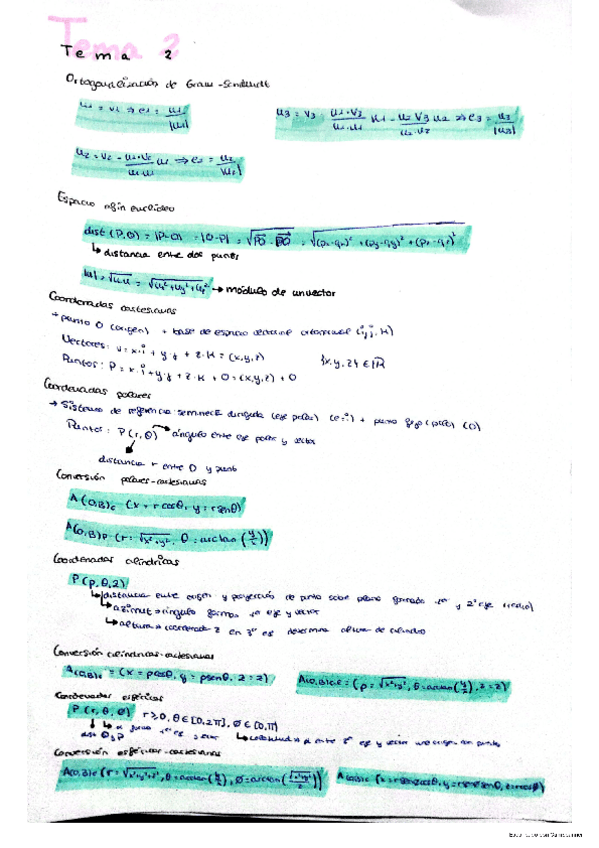 Tema 2
Tema 2
Ortogonalización de Gram-Schmidt
u1 = v1 ⇒ e1 = u1/|u1|
u3 = v3 - (u1·v3)/(u1·u1) u1 - (u2·v3)/(u2·u2) u2 ⇒ e3 = u3/|u3|
u2 = v2 - (u1·v2)/(u1·u1) u1 ⇒ e2 = u2/|u2|
Espacio afín euclídeo
dist (P,Q) = |P-Q| = |Q-P| = √(PQ · PQ) = √((px-qx)² + (py-qy)² + (pz-qz)²)
↳ distancia entre dos puntos
|u| = √u·u = √(ux²+uy²+uz²) → módulo de un vector
Coordenadas cartesianas
→ punto O (origen) + base de espacio vectorial ortonormal (i, j, k)
Vectores: v = x·i + y·j + z·k = (x,y,z)
{x,y,z} ∈ ℝ
Puntos: P = x·i + y·j + z·k + O = (x,y,z) + O
Coordenadas polares
→ Sistema de referencia: semirrecta dirigida (eje polar) (e:i) + punto fijo (polo) (O)
Puntos: P(r, θ) → ángulo entre eje polar y vector
distancia r entre O y punto
Conversión polares-cartesianas
A(O,B)c (x = r cosθ, y = r senθ)
A(O,B)p (r = √x²+y², θ = arctan (y/x))
Coordenadas cilíndricas
P(ρ, θ, z)
↳ distancia entre origen y proyección de punto sobre plano formado 1er y 2º eje (radio)
↳ azimut → ángulo forman 1er eje y vector
↳ altura → coordenada z en 3er eje determina altura de cilindro
Conversión cilíndricas-cartesianas
A(O,B)c = (x = ρcosθ, y = ρsenθ, z = z)
A(O,B)cil = (ρ = √x²+y², θ = arctan(y/x), z = z)
Coordenadas esféricas
P(r, θ, ø) r≥0, θ∈[0,2π], ø∈[0,π]
dist O y P
Conversión esféricas-cartesianas
A(O,B)e (r = √x²+y²+z², θ = arctan(y/x), ø = arctan(√x²+y²/z))
A(O,B)c (x = rsenøcosθ, y = rsenøsenθ, z = rcosø)